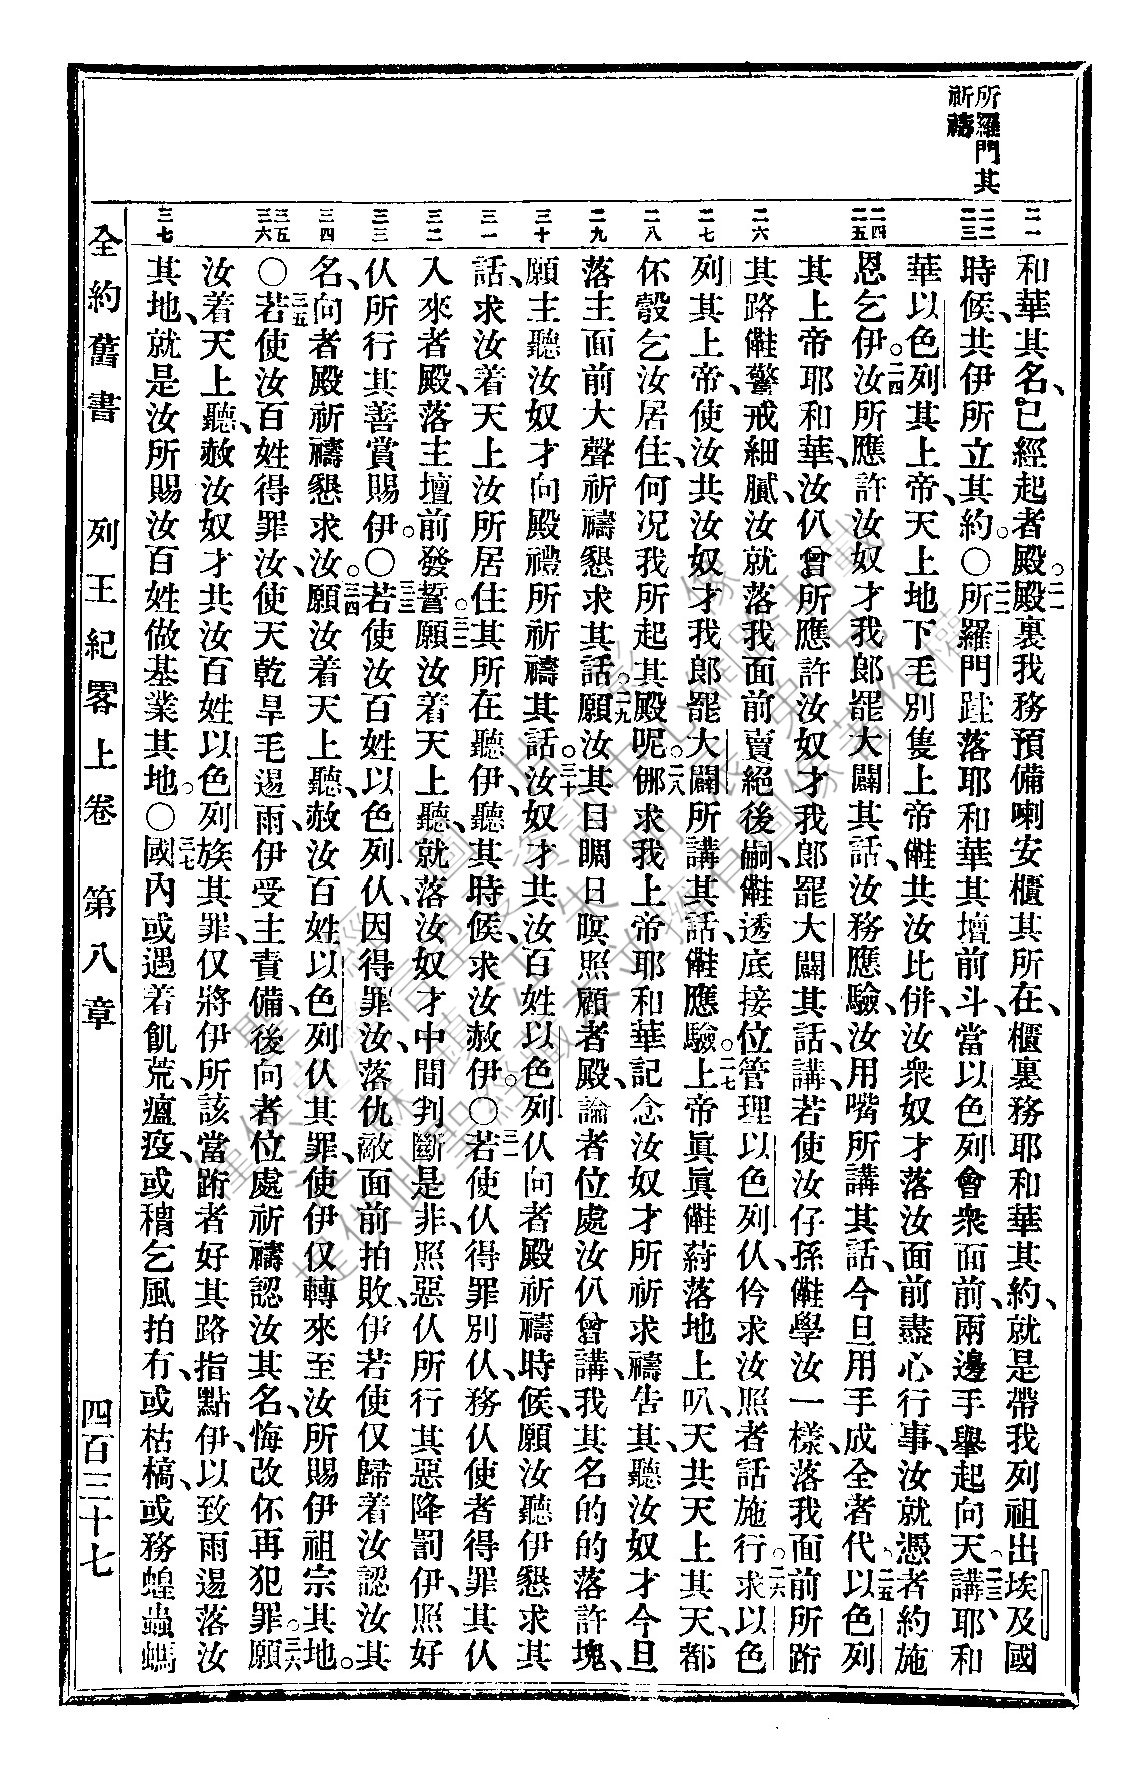 所羅門其
祈禱
二一
二二
二三
二四
二五
二六
二七
二八
二九
三十
三一
三二
三三
三四
三五
三六
三七
和華其名、已經起者殿。二一殿裏我務預備喇安櫃其所在、櫃裏務耶和華其約、就是帶我列祖出埃及國
時候、共伊所立其約。〇二二所羅門跬落耶和華其壇前、斗當以色列會衆面前、兩邊手舉起向天。二三講、耶和
華以色列其上帝、天上地下毛別隻上帝𣍐共汝比併、汝衆奴才落汝面前盡心行事、汝就憑者約施
恩乞伊。二四汝所應許汝奴才我郎罷大闢其話、汝務應驗、汝用嘴所講其話、今旦用手成全者代。二五以色列
其上帝耶和華、汝仈曾所應許汝奴才我郎罷大闢其話講、若使汝仔孫𣍐學汝一樣、落我面前所跴
其路𣍐警戒細膩、汝就落我面前賣絕後嗣、𣍐透底接位管理以色列仈、仱求汝照者話施行。二六求以色
列其上帝、使汝共汝奴才我郎罷大闢所講其話、𣍐應驗。二七上帝眞眞𣍐蒔落地上叭、天共天上其天、都
伓彀乞汝居住、何况我所起其殿呢。二八㑚求我上帝耶和華記念汝奴才所祈求禱告其、聽汝奴才今旦
落主面前大聲祈禱懇求其話。二九願汝其目睭日暝照顧者殿、論者位處汝仈曾講、我其名的的落許塊、
願主聽汝奴才向殿禮所祈禱其話。三十汝奴才共汝百姓以色列仈向者殿祈禱時候、願汝聽伊懇求其
話、求汝着天上汝所居住其所在聽伊、聽其時候、求汝赦伊。〇三一若使仈得罪別仈、務仈使者得罪其仈
入來者殿、落主壇前發誓。三二願汝着天上聽、就落汝奴才中間判斷是非、照惡仈所行其惡降罰伊、照好
仈所行其善賞賜伊。〇三三若使汝百姓以色列仈因得罪汝、落仇敵面前拍敗、伊若使仅歸着汝認汝其
名、向者殿祈禱懇求汝。三四願汝着天上聽、赦汝百姓以色列仈其罪、使伊仅轉來至汝所賜伊祖宗其地。
〇三五若使汝百姓得罪汝、使天乾旱毛逿雨、伊受主責備、後向者位處祈禱認汝其名、悔改伓再犯罪。三六願
汝着天上聽、赦汝奴才共汝百姓以色列族其罪、仅將伊所該當跴者好其路指點伊、以致雨逿落汝
其地、就是汝所賜汝百姓做基業其地。〇三七國內或遇着飢荒、瘟疫、或穡乞風拍冇、或枯槁、或務蝗蟲螞
全約舊書　列王紀畧上卷　第八章　四百三十七